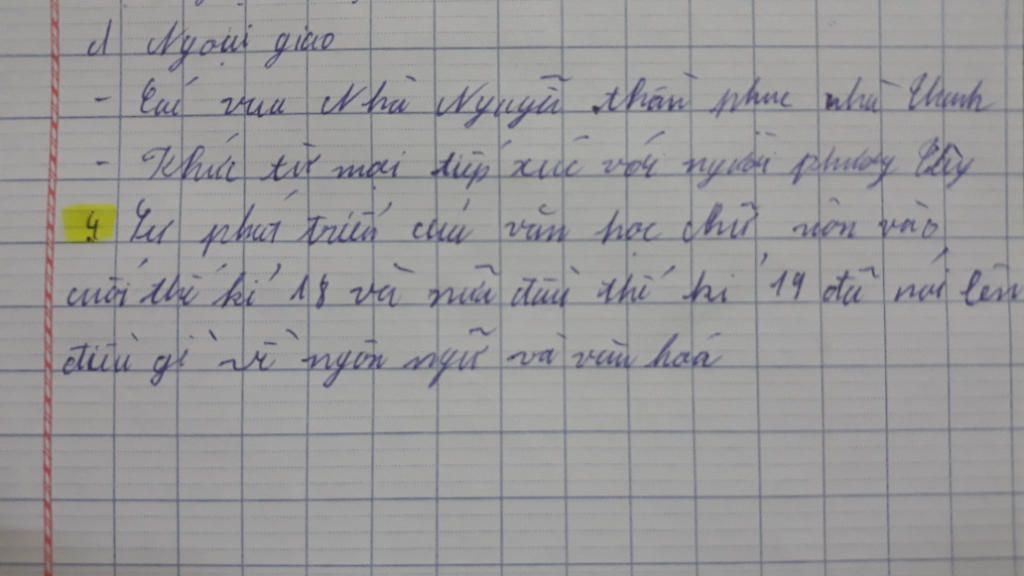 d Ngoại giao
- Các vua Nhà Nguyễn thần phục nhà Thanh
- Khước từ mọi tiếp xúc với người phương Tây
4 Sự phát triển của văn học chữ nôm vào
cuối thế kỉ 18 và nửa đầu thế kỉ 19 đã nói lên
điều gì về ngôn ngữ và văn hoá